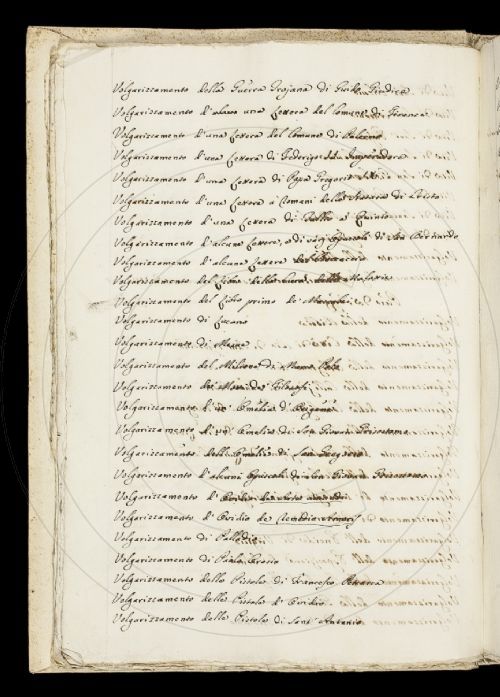 Volgarizzamento della Guerra Trojana di Guido Giudice
Volgarizzamento d'una Lettera del Comune di Firenze
Volgarizzamento d'una Lettera del Comune di Palermo
Volgarizzamento d'una Lettera di Federigo Imperadore
Volgarizzamento d'una Lettera di Papa Gregorio
Volgarizzamento d'una Lettera a Romani della di Cristo
Volgarizzamento d'una Lettera di Tullio a Quinto
Volgarizzamento d'alcune Lettere, e di varj Opuscoli di San Bernardo
Volgarizzamento d'alcune Lettere del Boccaccio
Volgarizzamento del Libro della Cura delle Malattie
Volgarizzamento del Libro primo de' Maccabei
Volgarizzamento di Lucano
Volgarizzamento di Mesue
Volgarizzamento del Milione di Marco Polo
Volgarizzamento de' Filosofi
Volgarizzamento d'un' Omelia d'Origene
Volgarizzamento d'un' Omelia di San Giovanni Grisostomo
Volgarizzamento dell' Omelie di San Gregorio
Volgarizzamento d'alcuni Opuscoli di San Giovanni Grisostomo
Volgarizzamento d'Ovidio
Volgarizzamento d'Ovidio de Remedio Amoris
Volgarizzamento di Palladio
Volgarizzamento di Paolo Orosio
Volgarizzamento delle Pistole di Francesco Petrarca
Volgarizzamento delle Pistole d'Ovidio
Volgarizzamento delle Pistole di Sant' Antonio